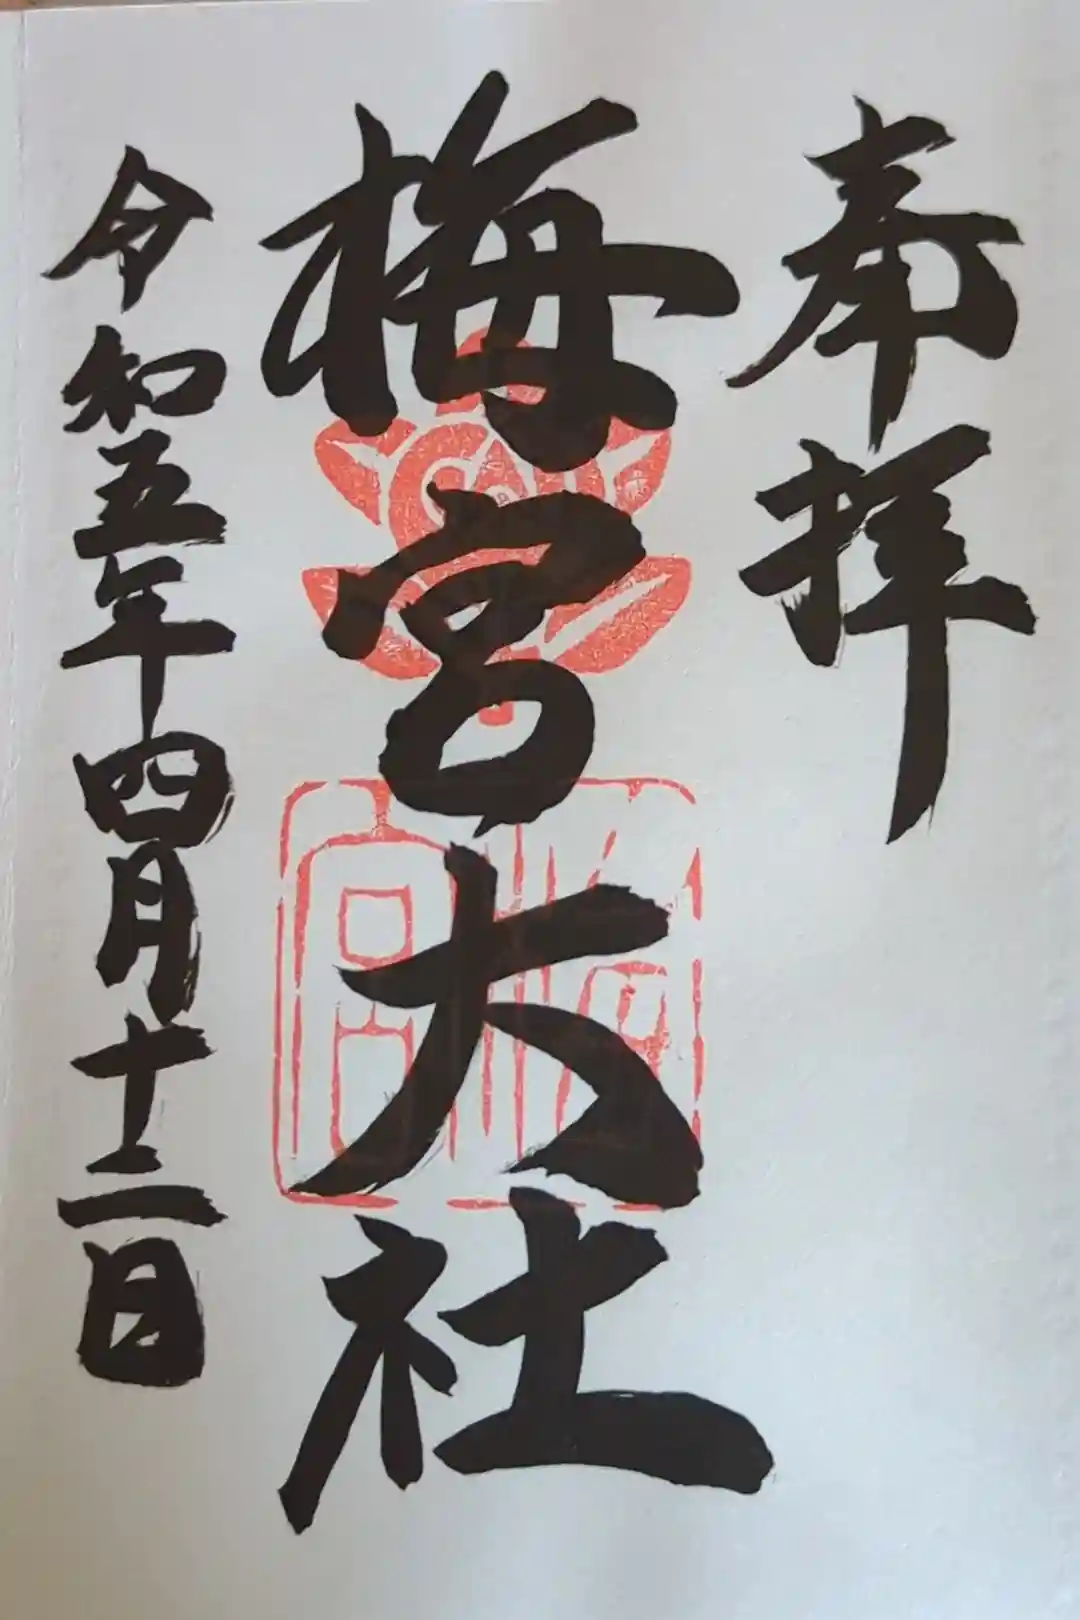 奉拝
梅宮大社
令和五年四月十二日
梅宮